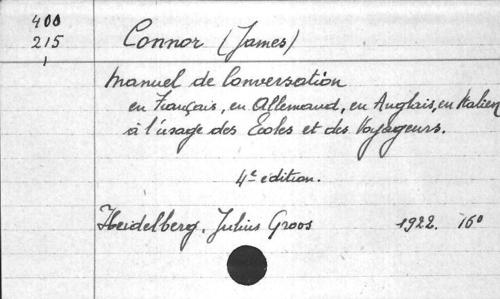 400
215
1
Connor (James)
Manuel de Conversation
en Français, en Allemand, en Anglais, en Italien
à l'usage des Écoles et des Voyageurs.
4e édition.
Heidelberg. Julius Groos 1922. 16°